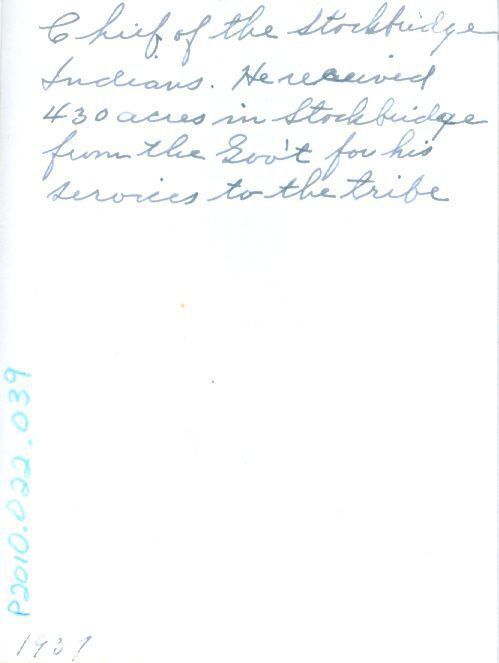 Chief of the Stockbridge
Indians. He received
430 acres in Stockbridge
from the Gov't for his
services to the tribe
P2010.022.039
1937